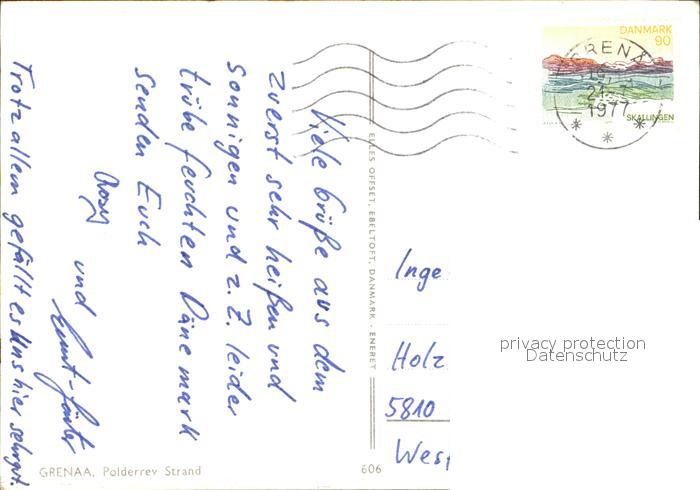 Viele Grüße aus dem
zuerst sehr heißen und
sonnigen und z.Z. leider
trübe feuchten Dänemark
senden Euch
und
Trotz allem gefällt es uns hier sehr gut.
ELLES OFFSET, EBELTOFT, DANMARK - ENERET
GRENAA, Polderrev Strand
606
DANMARK
90
SKALLINGEN
GRENÅ
1977
Inge
Holz
5810
West
privacy protection
Datenschutz